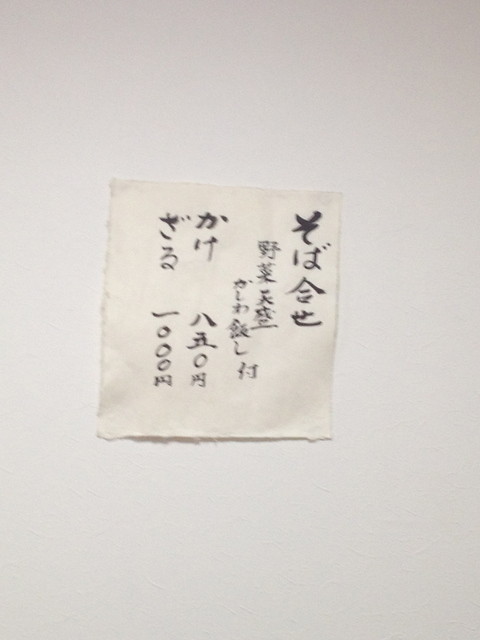 そば合せ
野菜天盛
かしわ飯し付
かけ 八五〇円
ざる 一〇〇〇円